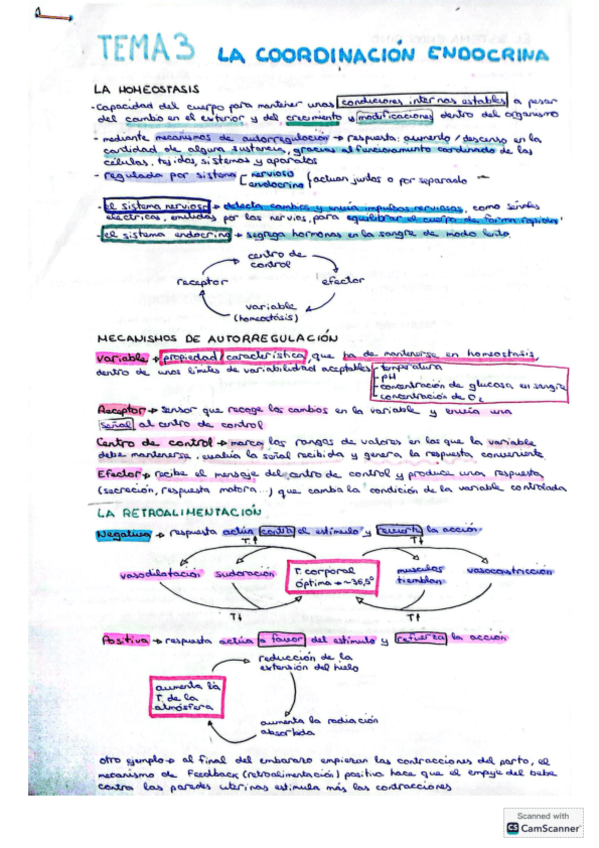 TEMA 3 LA COORDINACIÓN ENDOCRINA
LA HOMEOSTASIS
-capacidad del cuerpo para mantener unas condiciones internas estables a pesar
del cambio en el exterior y del crecimiento y modificaciones dentro del organismo
- mediante mecanismos de autorregulación → respuesta: aumento / descenso en la
cantidad de alguna sustancia, gracias al funcionamiento coordinado de las
células, tejidos, sistemas y aparatos
- regulada por sistema nervioso
endocrino
actúan juntos o por separado
- el sistema nervioso → detecta cambios y envía impulsos nerviosos, como señales
eléctricas, enviadas por los nervios, para equilibrar el cuerpo de forma rápida
- el sistema endocrino → segrega hormonas en la sangre de modo lento.
centro de
control
receptor
efector
variable
(homeostasis)
MECANISMOS DE AUTORREGULACIÓN
variable → propiedad / característica, que ha de mantenerse en homeostasis,
dentro de unos límites de variabilidad aceptables
- temperatura
- pH
- concentración de glucosa en sangre
- concentración de O2
Receptor → sensor que recoge los cambios en la variable y envía una
señal al centro de control
Centro de control → marca los rangos de valores en los que la variable
debe mantenerse, evalúa la señal recibida y genera la respuesta conveniente
Efector → recibe el mensaje del centro de control y produce una respuesta
(secreción, respuesta motora...) que cambia la condición de la variable controlada
LA RETROALIMENTACIÓN
Negativa → respuesta actúa contra el estímulo y revierte la acción
T↑
T↓
vasodilatación
sudoración
T. corporal
óptima → ~36,5º
músculos
tiemblan
vasoconstricción
T↓
T↑
Positiva → respuesta actúa a favor del estímulo y refuerza la acción
reducción de la
extensión del hielo
aumenta la
T. de la
atmósfera
aumenta la radiación
absorbida
otro ejemplo → al final del embarazo empiezan las contracciones del parto, el
mecanismo de Feedback (retroalimentación) positiva hace que el empuje del bebé
contra las paredes uterinas estimula más las contracciones
Scanned with
CS CamScanner